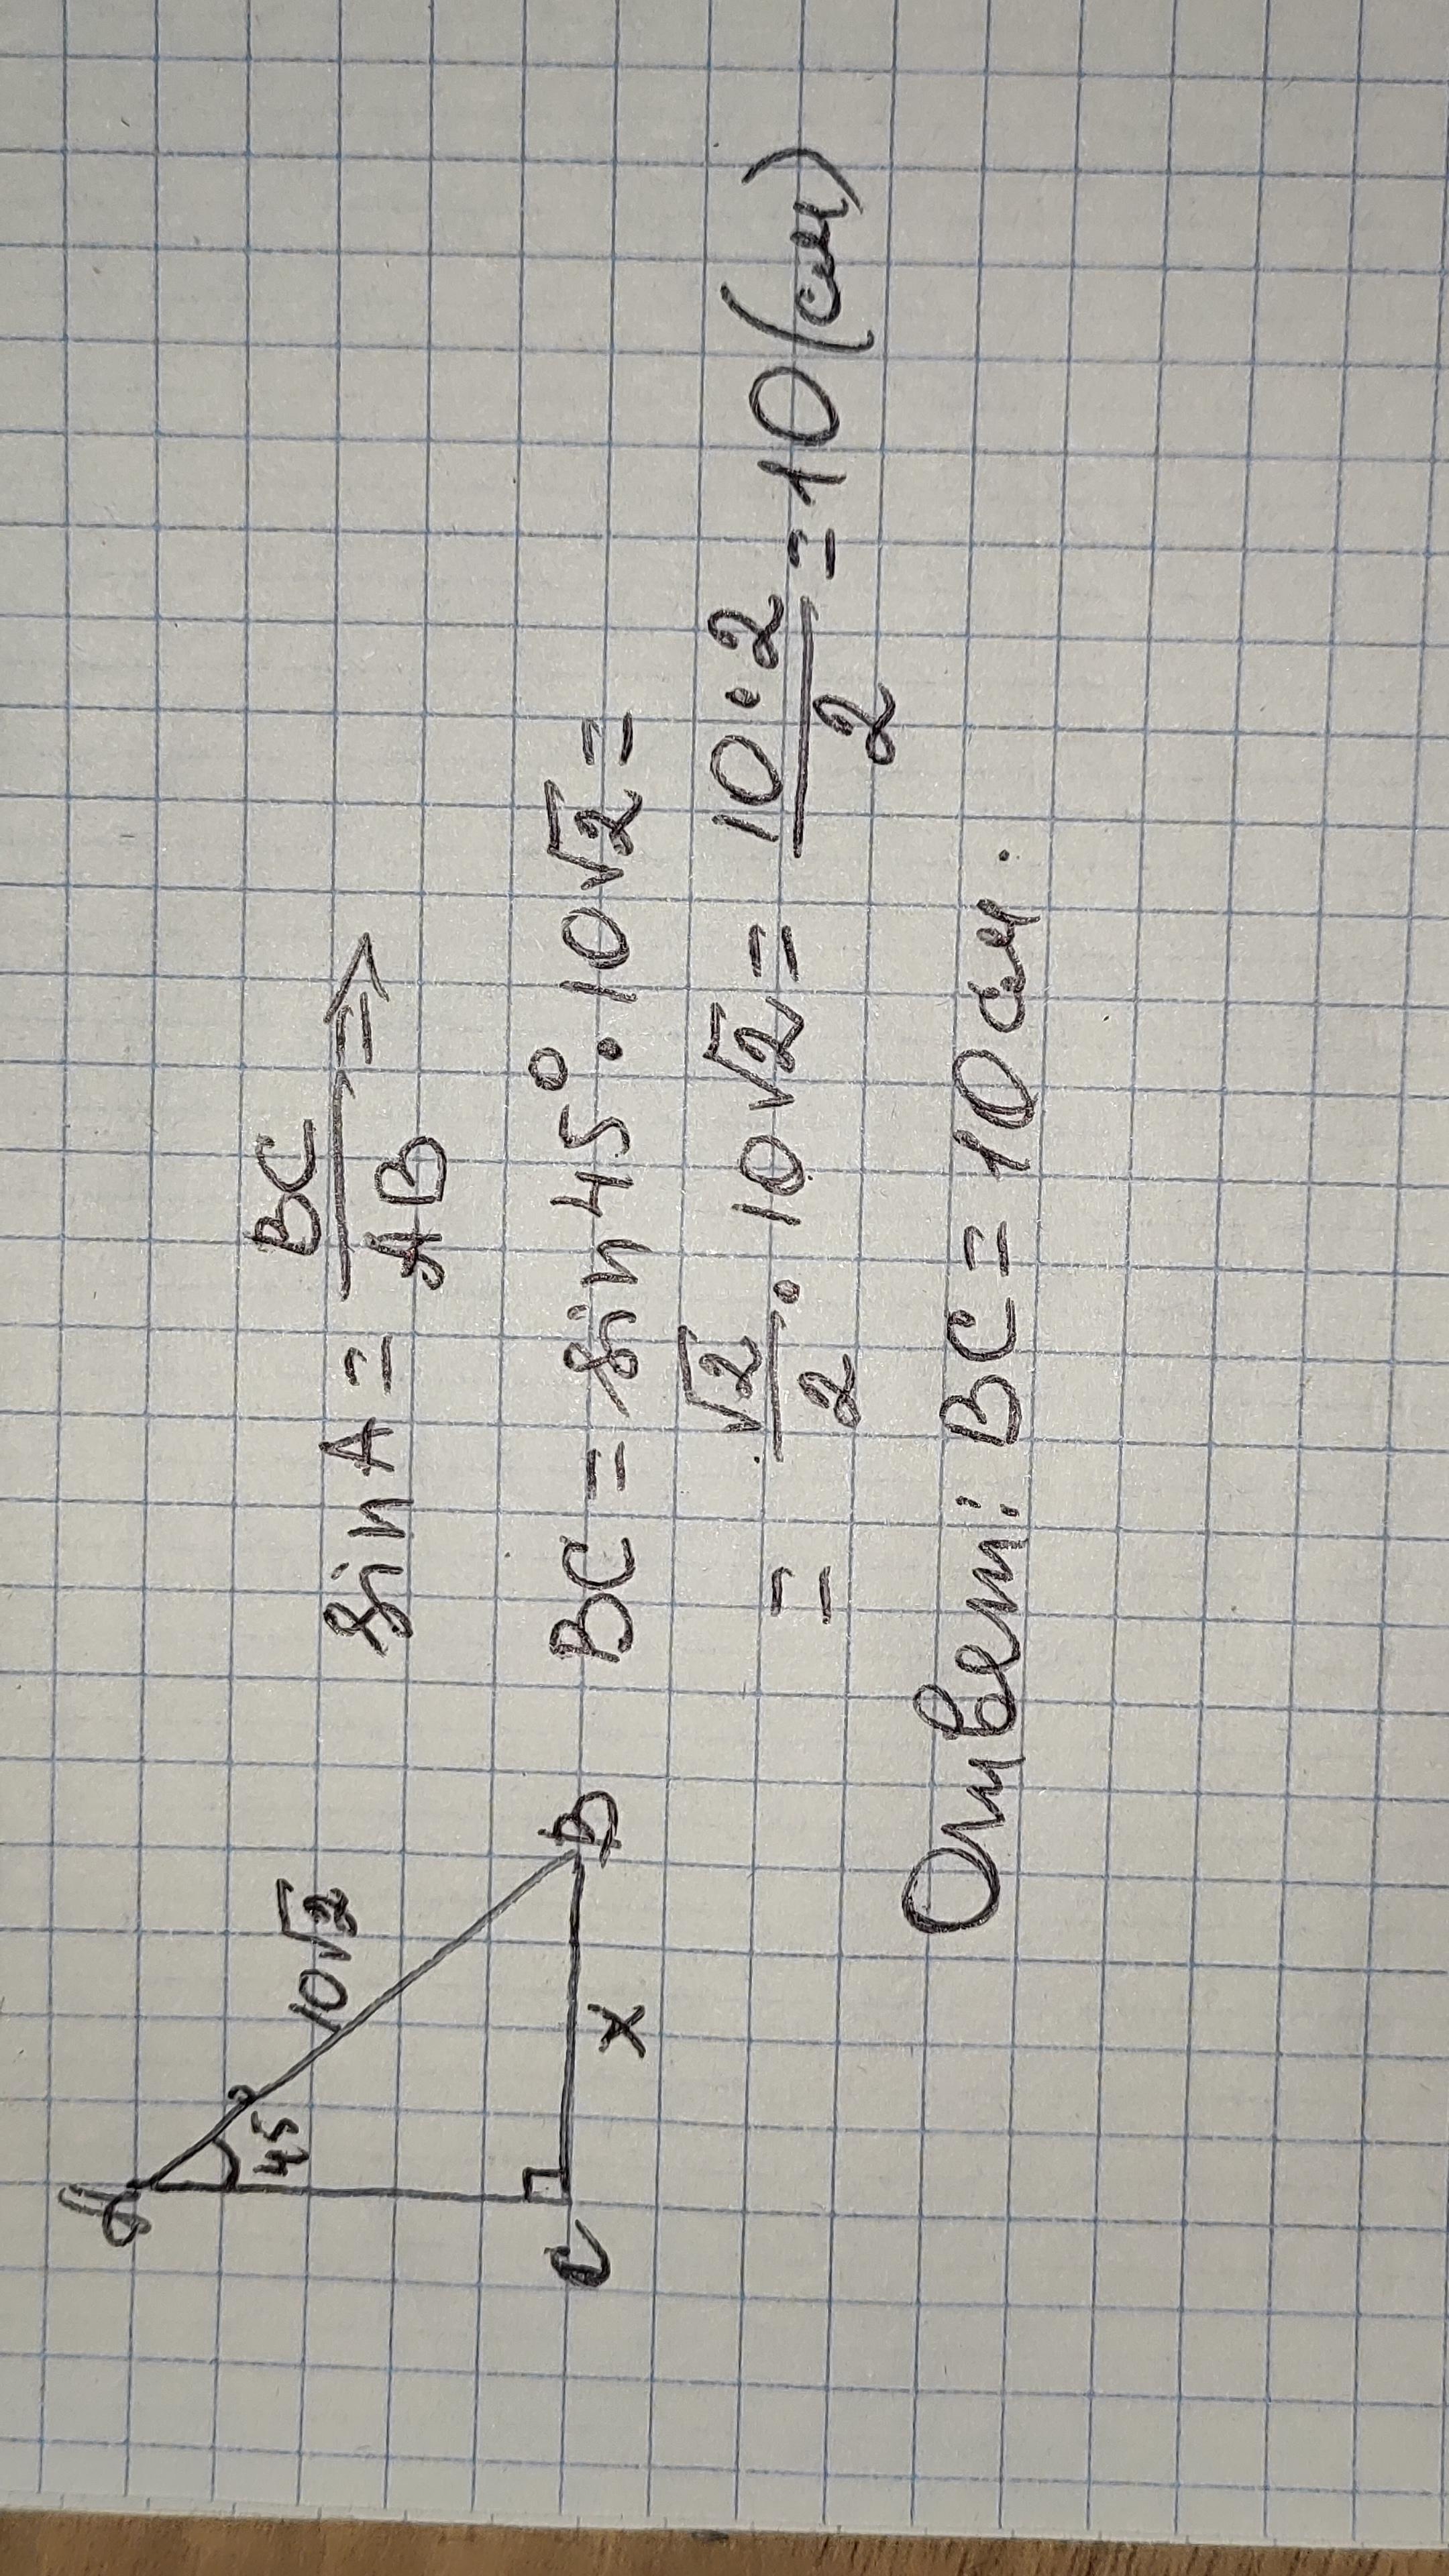 A
45°
10√2
C
x
B
sin A = BC/AB ⇒
BC = sin 45° · 10√2 =
= √2/2 · 10√2 = 10·2/2 = 10 (см)
Ответ: BC = 10 см.